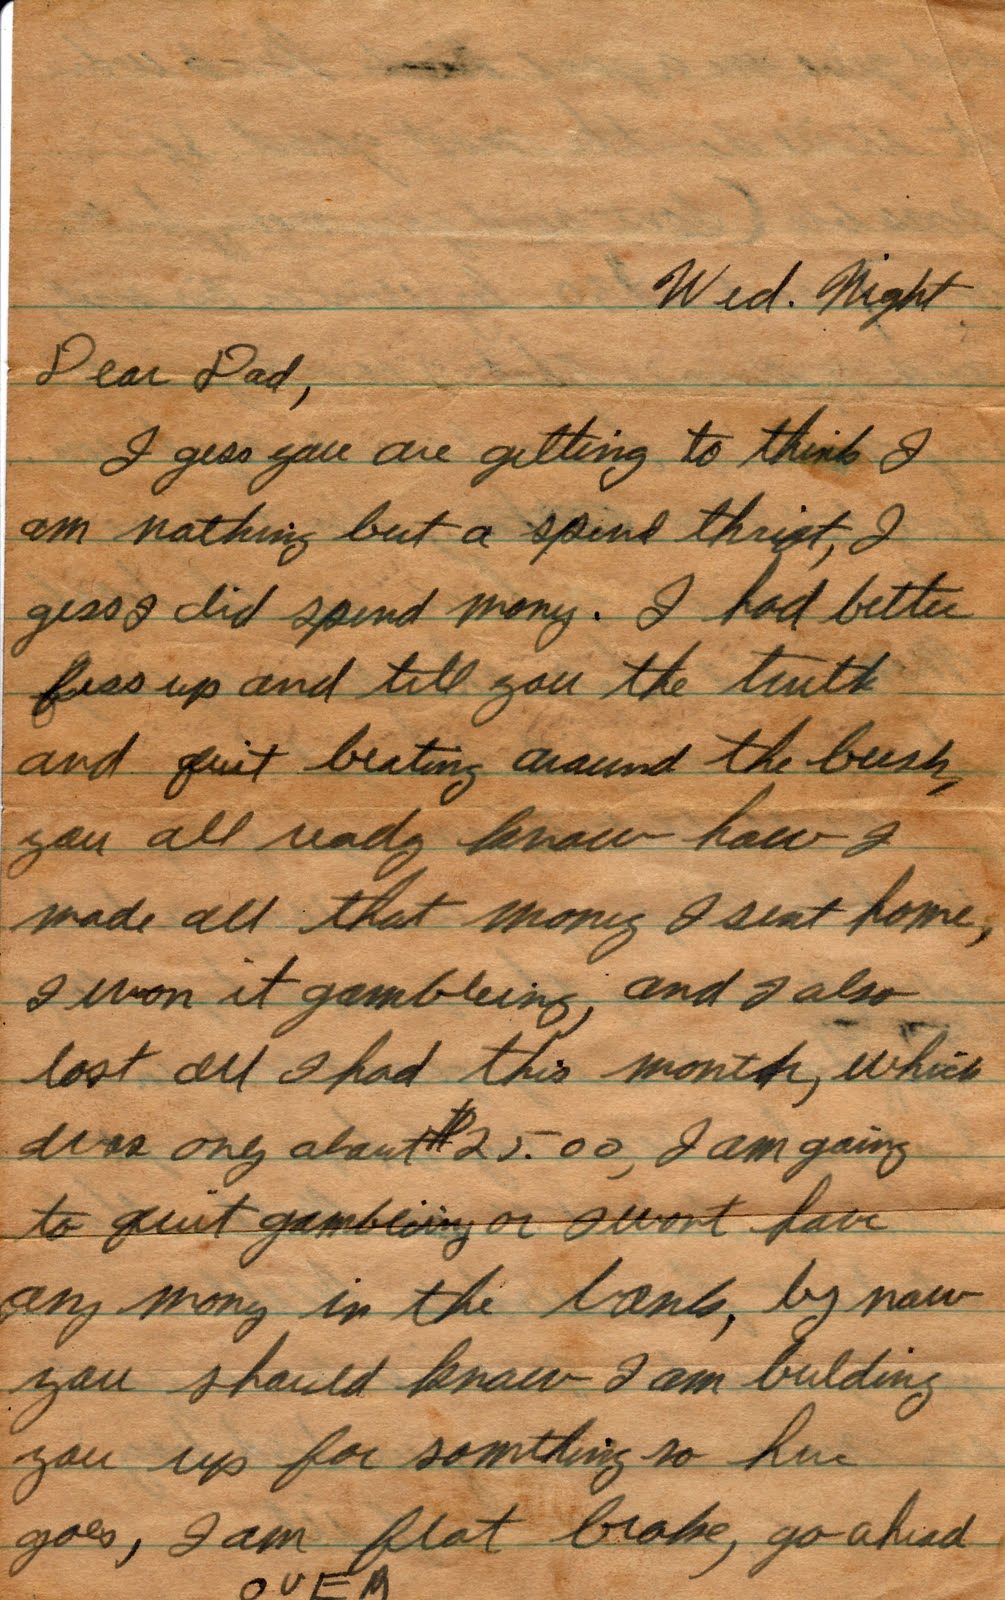 Wed. Night
Dear Dad,
I gess you are getting to think I
am nothing but a spend thrift, I
gess I did spend mony. I had better
fess up and tell you the truth
and quit beating around the bush,
you all ready know how I
made all that money I sent home,
I won it gambleing, and I also
lost all I had this month, which
was only about $25.00, I am going
to quit gambleing or I wont have
any mony in the bank, by now
you should know I am bulding
you up for somthing so here
goes, I am flat broke, go ahead
OVER